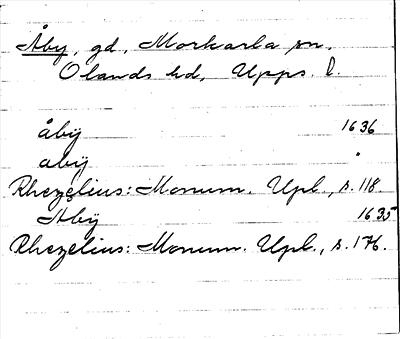 Åby, gd., Morkarla sn.
Olands hd, Upps. l.
åbÿ 1636
abÿ "
Rhezelius: Monum. Upl., s. 118.
Abÿ 1635
Rhezelius: Monum. Upl., s. 176.